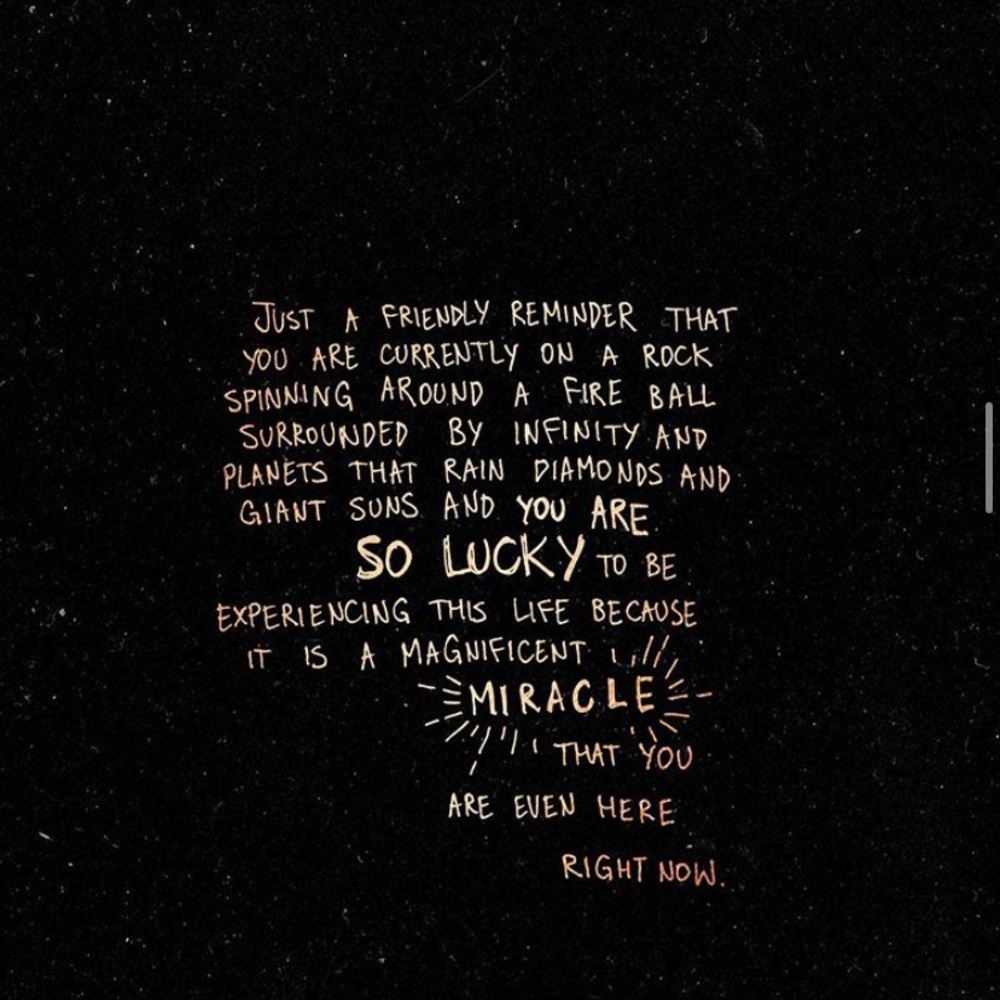 JUST A FRIENDLY REMINDER THAT
YOU ARE CURRENTLY ON A ROCK
SPINNING AROUND A FIRE BALL
SURROUNDED BY INFINITY AND
PLANETS THAT RAIN DIAMONDS AND
GIANT SUNS AND YOU ARE
SO LUCKY TO BE
EXPERIENCING THIS LIFE BECAUSE
IT IS A MAGNIFICENT
MIRACLE
THAT YOU
ARE EVEN HERE
RIGHT NOW.